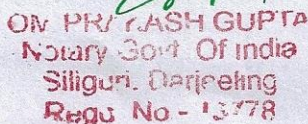 OM PRAKASH GUPTA
Notary Govt. Of India
Siliguri. Darjeeling
Regd. No - 13778